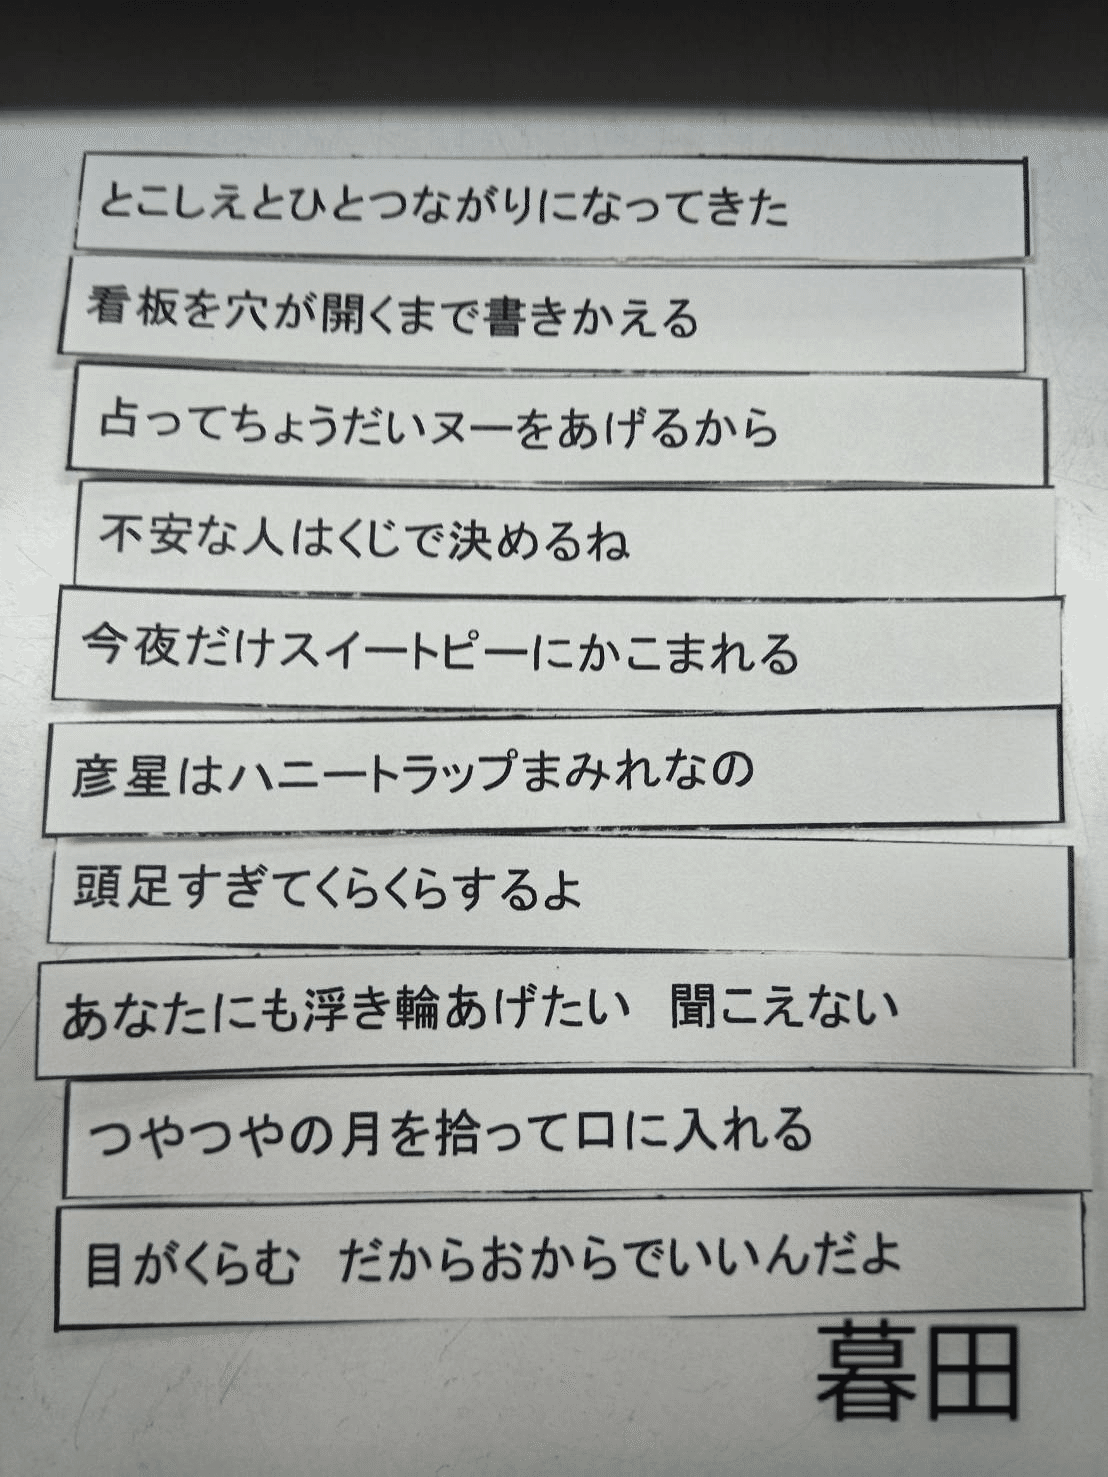 とこしえとひとつながりになってきた
看板を穴が開くまで書きかえる
占ってちょうだいヌーをあげるから
不安な人はくじで決めるね
今夜だけスイートピーにかこまれる
彦星はハニートラップまみれなの
頭足すぎてくらくらするよ
あなたにも浮き輪あげたい　聞こえない
つやつやの月を拾って口に入れる
目がくらむ　だからおからでいいんだよ
暮田